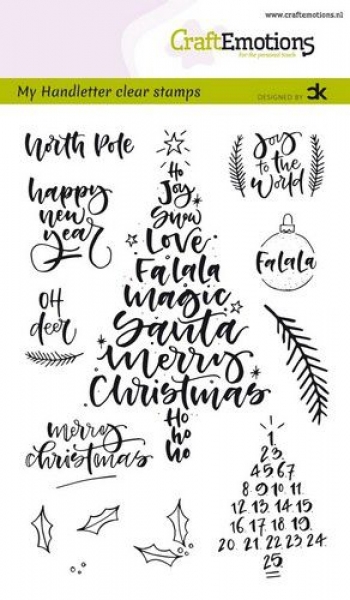 www.craftemotions.nl
CraftEmotions
For the personal touch
My Handletter clear stamps
DESIGNED BY CK
North Pole
happy
new
year
OH
deer
merry
christmas
Ho
Joy
Snow
Love
Falala
magic
Santa
Merry
Christmas
Ho
ho
ho
Joy
to the
World
Falala
1
2.3.
4.5.6.7
8.9.10.11.12.
13.14.15.16.
17.18.19.
20. 21. 22 23 24.
25.